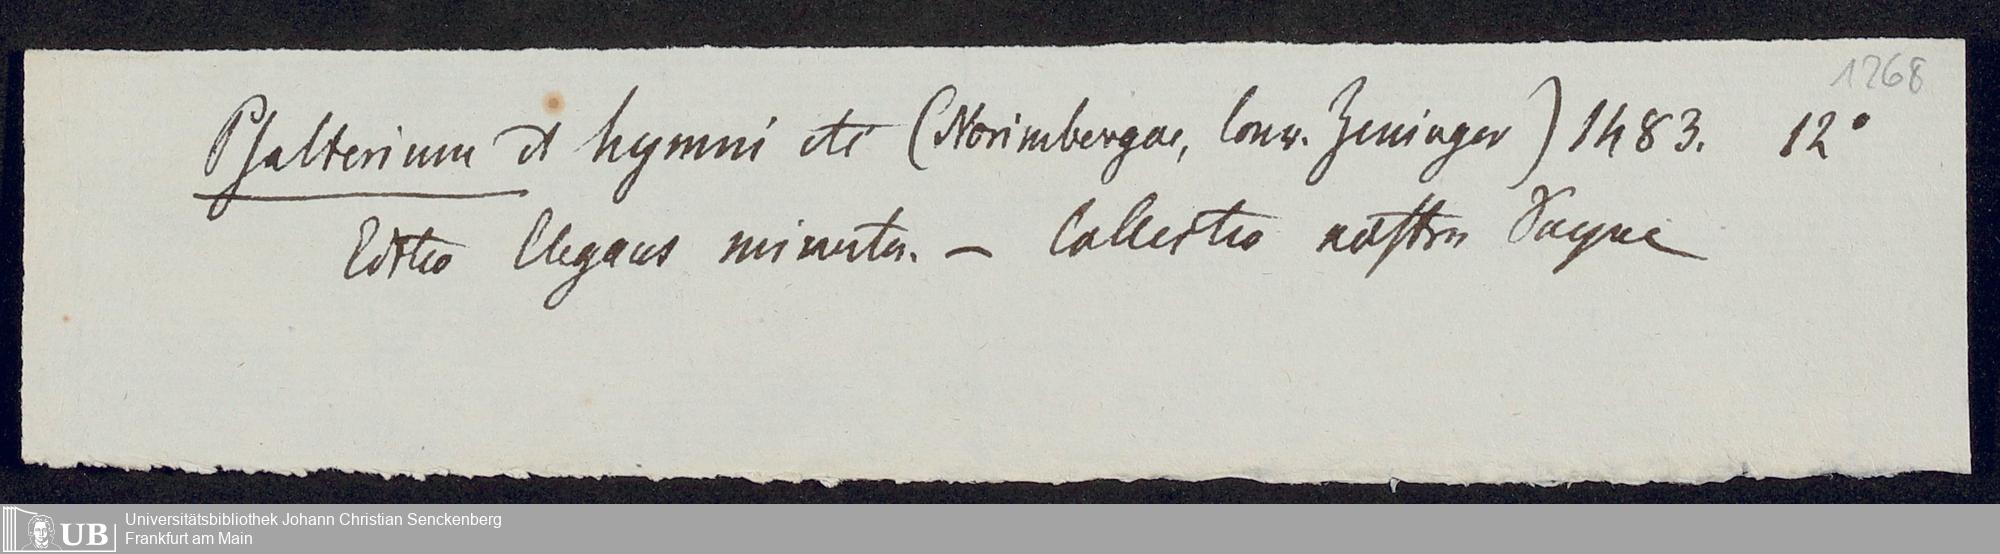 1268
Psalterium et hymni etc (Norimbergae, Conr. Zeninger) 1483. 12°
Editio Elegans minuta. — Collectio nostra
UB
Universitätsbibliothek Johann Christian Senckenberg
Frankfurt am Main